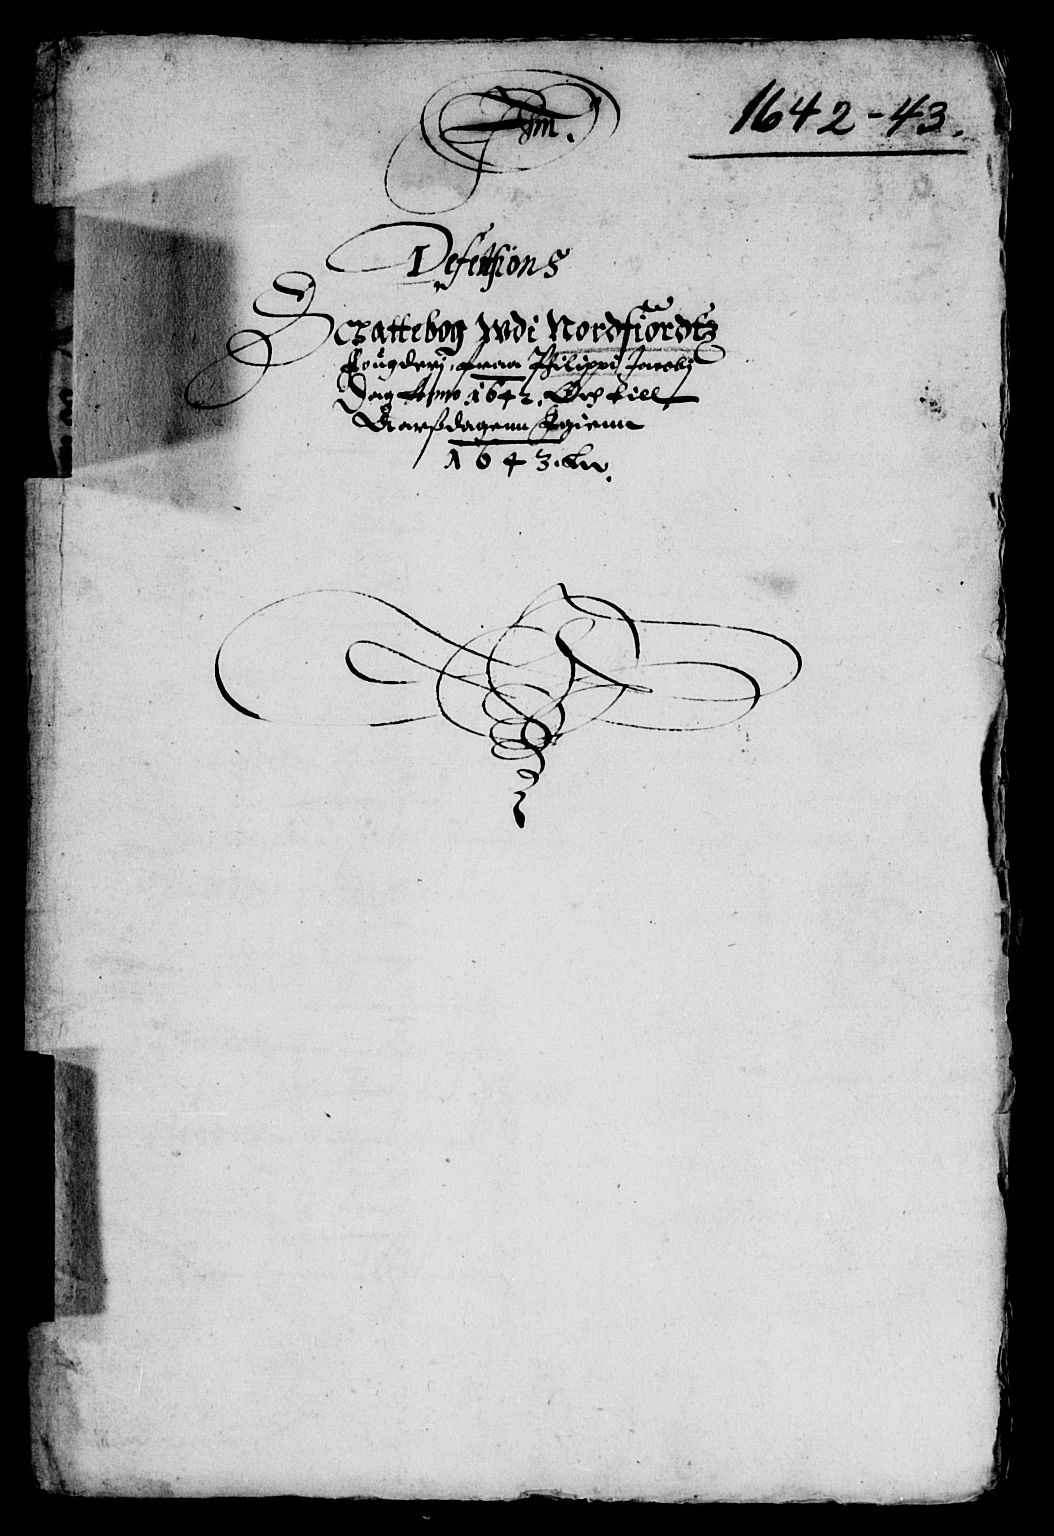 1642-43.
Defensions
Schattebog Wdi Nordfiordtz
Fougderj, fraa Philippi Jacobj
Dag Anno 1642. Och till
Aarßdagenn Igienn
1643. &c.